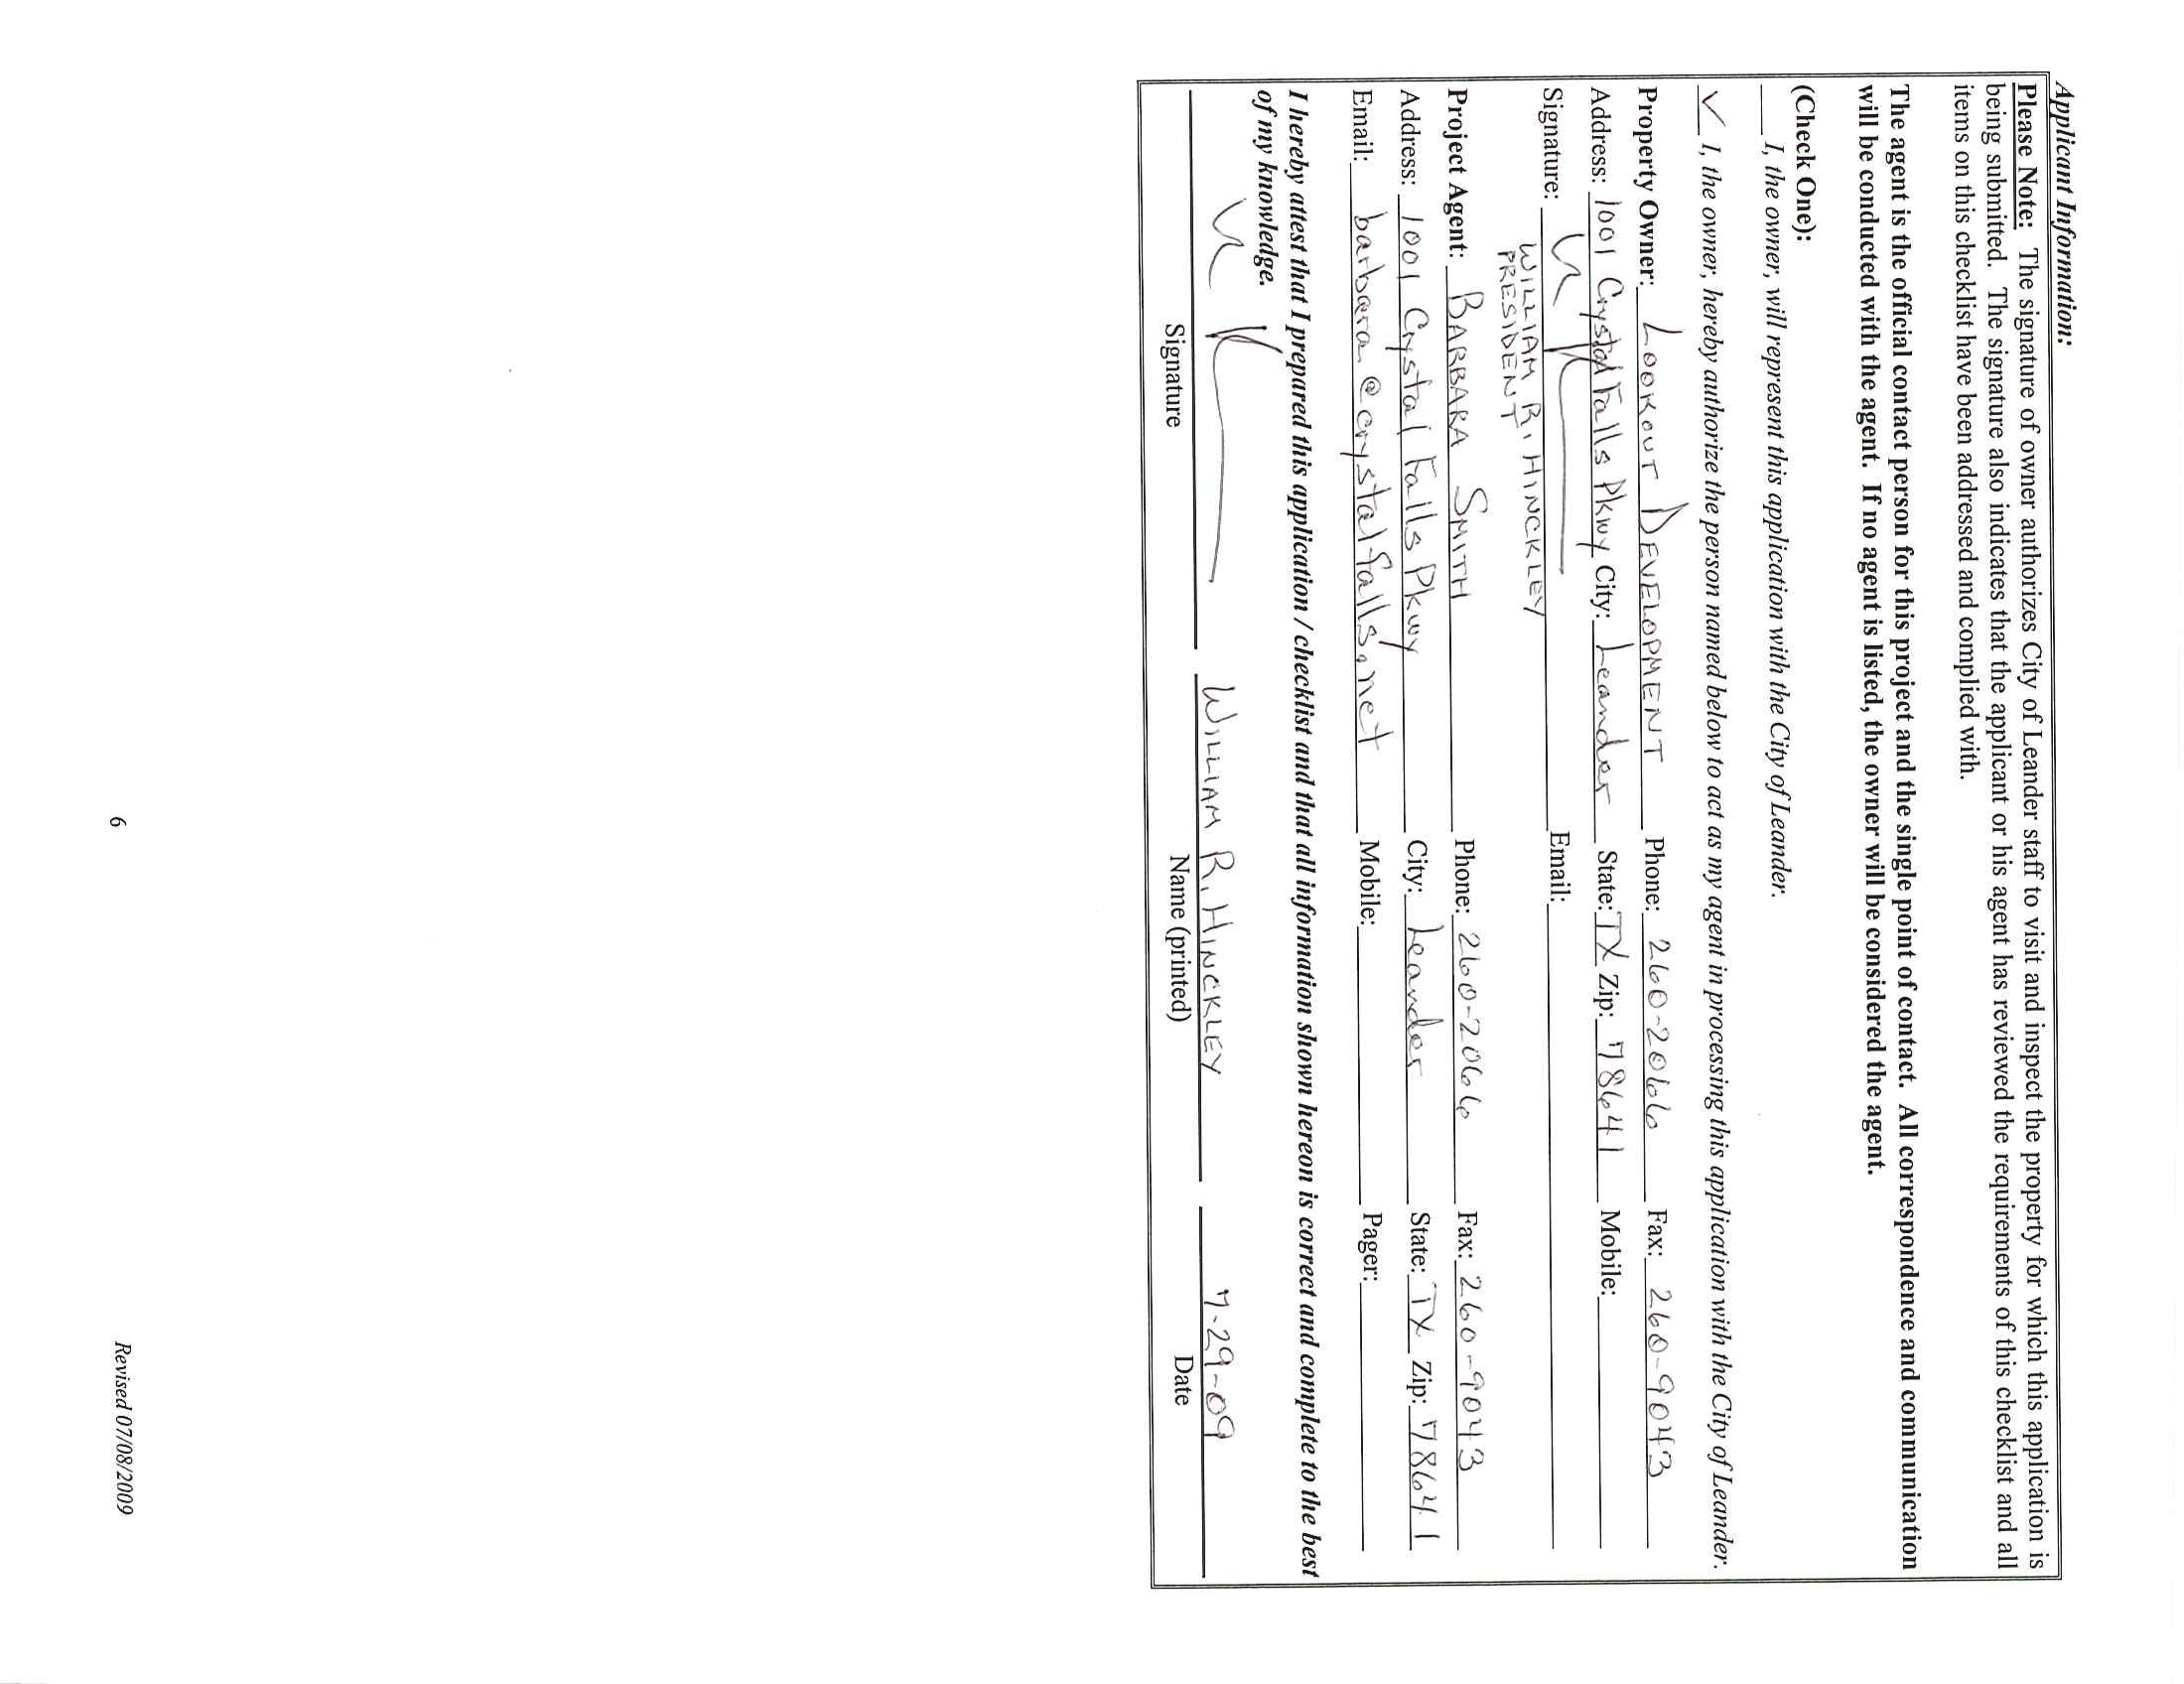 Applicant Information:
Please Note: The signature of owner authorizes City of Leander staff to visit and inspect the property for which this application is
being submitted. The signature also indicates that the applicant or his agent has reviewed the requirements of this checklist and all
items on this checklist have been addressed and complied with.
The agent is the official contact person for this project and the single point of contact. All correspondence and communication
will be conducted with the agent. If no agent is listed, the owner will be considered the agent.
(Check One):
___ I, the owner, will represent this application with the City of Leander.
✓ I, the owner, hereby authorize the person named below to act as my agent in processing this application with the City of Leander.
Property Owner: LOOKOUT DEVELOPMENT Phone: 260-2066 Fax: 260-9043
Address: 1001 Crystal Falls Pkwy City: Leander State: TX Zip: 78641 Mobile:
Signature: Email:
WILLIAM R. HINCKLEY
PRESIDENT
Project Agent: BARBARA SMITH Phone: 260-2066 Fax: 260-9043
Address: 1001 Crystal Falls Pkwy City: Leander State: TX Zip: 78641
Email: barbara@crystalfalls.net Mobile: Pager:
I hereby attest that I prepared this application / checklist and that all information shown hereon is correct and complete to the best
of my knowledge.
WILLIAM R. HINCKLEY 7-29-09
Signature Name (printed) Date
6 Revised 07/08/2009